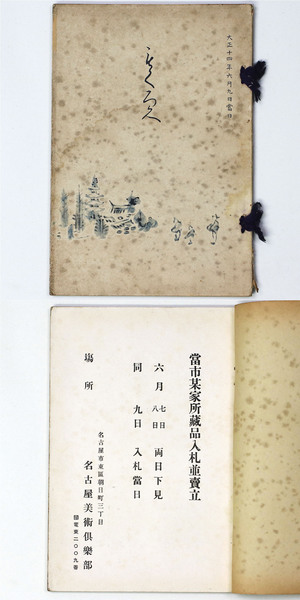 大正十四年六月九日當日
もくろく
當市某家所藏品入札並賣立
六月七日八日両日下見
同九日入札當日
場所
名古屋市東區朝日町三丁目
名古屋美術倶樂部
電東二〇〇九番